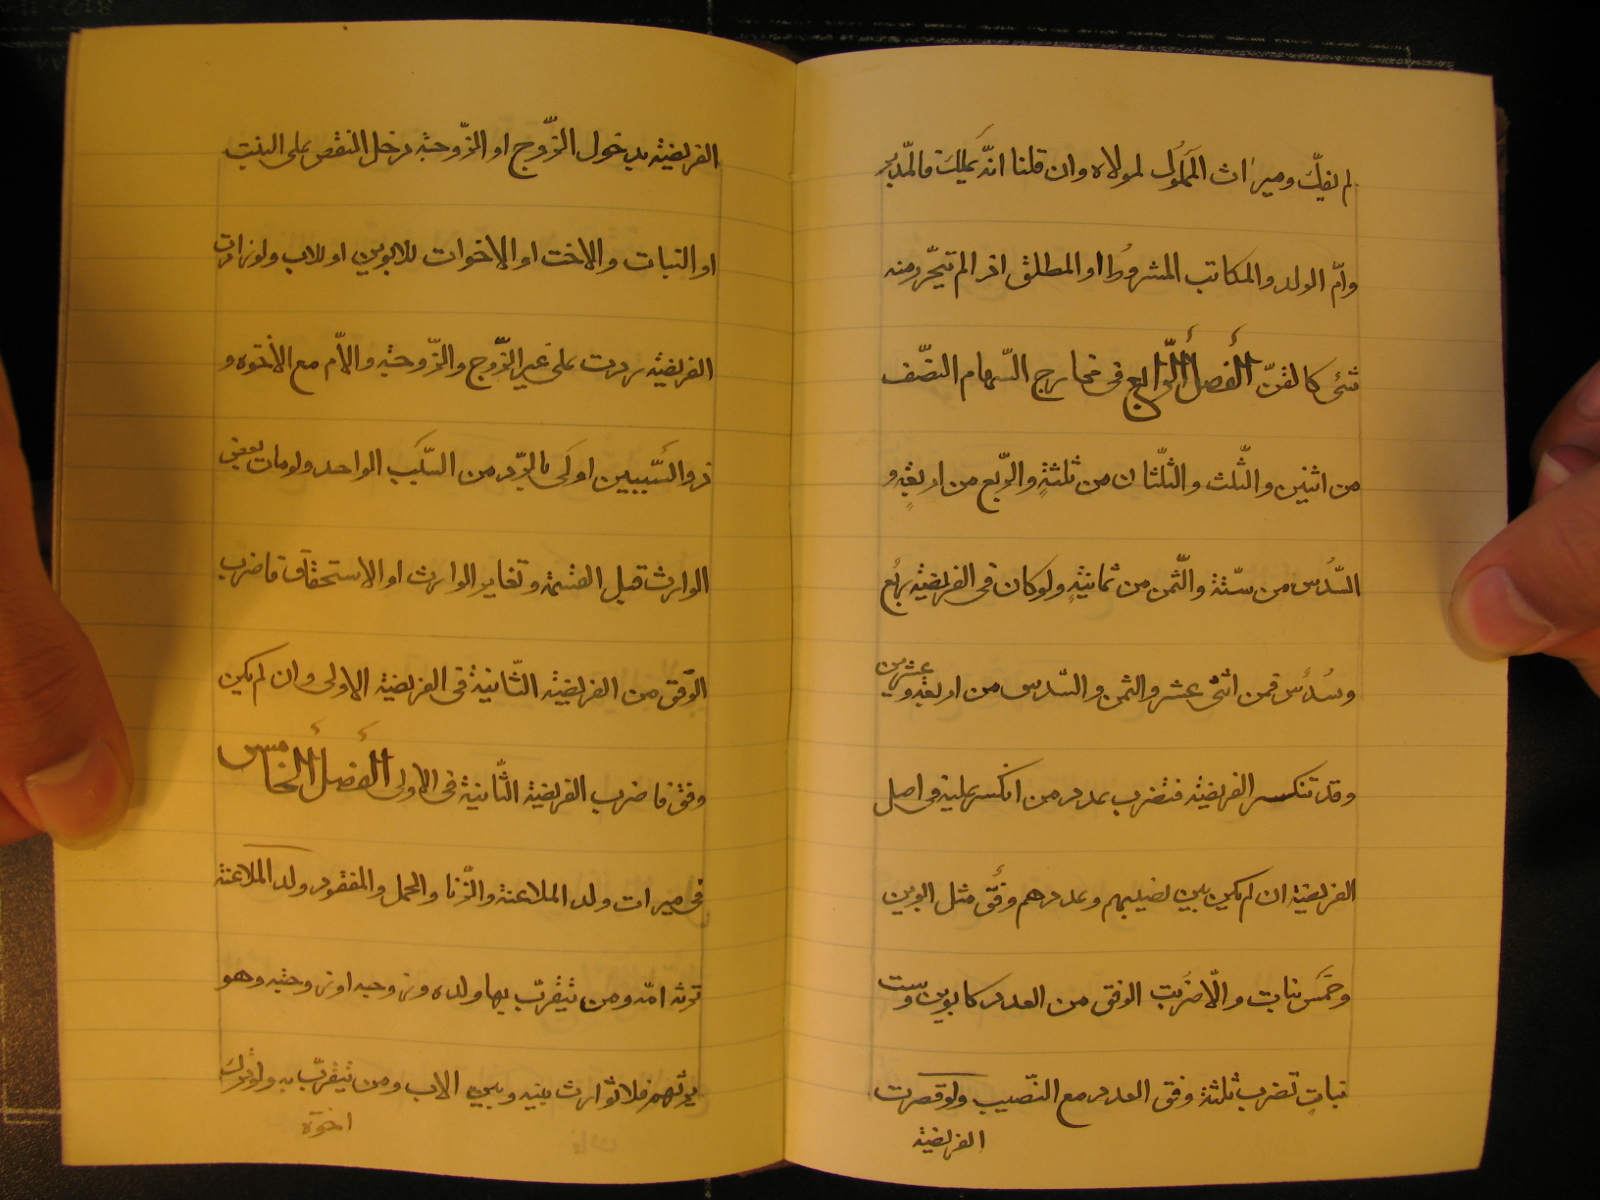 لم يفكّ وميراث المملوك لمولاه وان قلنا انّه يملك فالمدّبر
وامّ الولد والمكاتب المشروط او المطلق اذا لم يتحّرر منه
شئ كالقنّ الفصل الرّابع فى مخارج السّهام النصّف
من اثنين والثّلث والثّلثان من ثلثةٍ والرّبع من اربعةٍ و
السّدس من ستّة والثّمن من ثمانيةٍ ولوكان فى الفريضة ربع
وسُدس فمن اثنى عشر والثمن والسّدس من اربعة وعشرين
وقد تنكسر الفريضة فتضرب عدد من انكسر عليه فى اصل
الفريضة ان لم يكن بين نصيبهم وعددهم وفق مثل ابوين
وخمس بنات والّا ضربت الوفق من العدد كابوين وست
بنات تضرب ثلثة وفق العدد مع النّصيب ولو قصرت
الفريضة
الفريضة بدخول الزّوج او الزّوجة دخل النقص على البنت
او البنات والاخت او الاخوات للابوين او للاب ولو زادت
الفريضة ردت على غير الزّوج والزّوجة والاّم مع الأخوة و
ذو السّببين اولى بالرّد من السّبب الواحد ولو مات بعض
الوارث قبل القسمة وتغاير الوارث او الاستحقاق فاضرب
الوفق من الفريضة الثّانية فى الفريضة الاولى وان لم يكن
وفق فاضرب الفريضة الثّانية فى الاولى الفصل الخامس
فى ميراث ولد الملاعنة والزّنا والحمل والمفقود ولد الملاعنة
ترثه امّه ومن يتقرّب بها وولده وزوجه او زوجته وهو
يرثهم فلا توارث بينه وبين الاب ومن يتقرّب به ولو ترك
اخوة